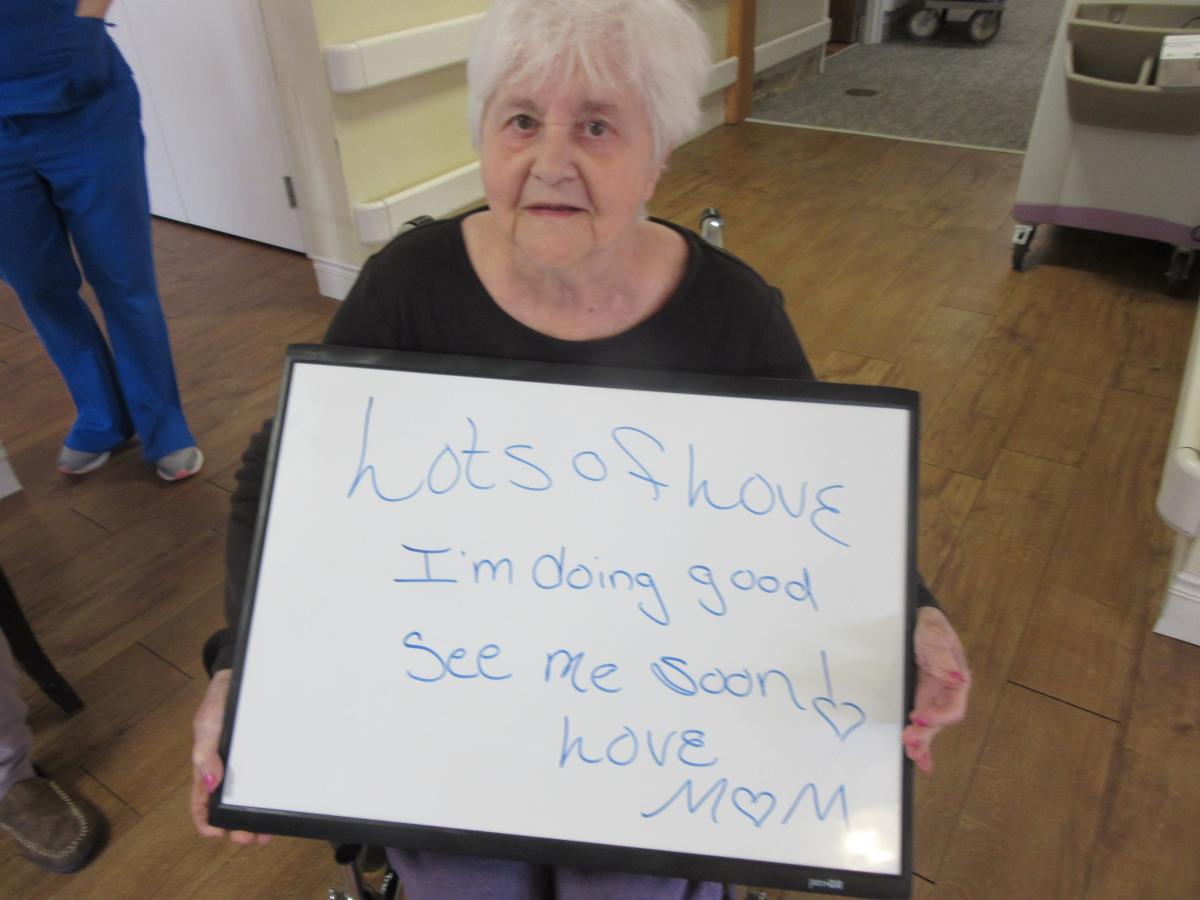 Lots of Love
I'm doing good
See me soon! ♡
Love
M♡M